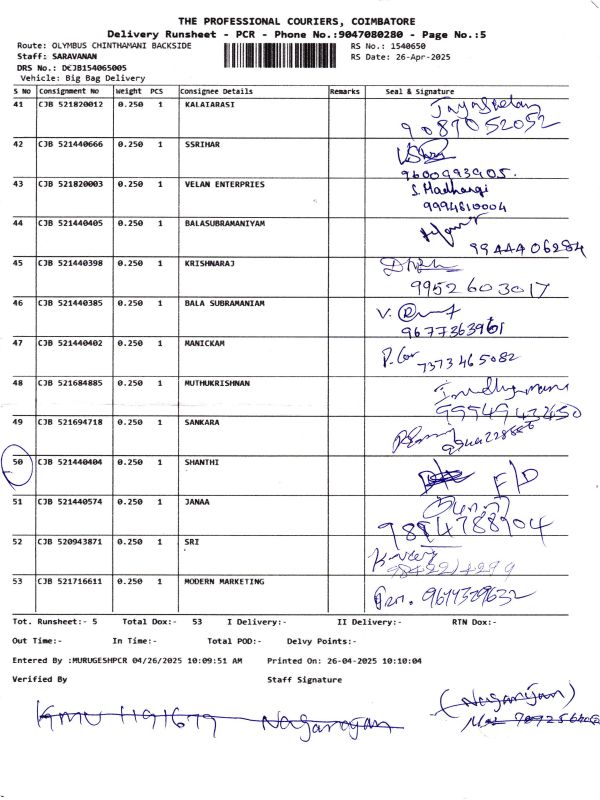 THE PROFESSIONAL COURIERS, COIMBATORE
Delivery Runsheet - PCR - Phone No.:9047080280 - Page No.:5
Route: OLYMBUS CHINTHAMANI BACKSIDE RS No.: 1540650
Staff: SARAVANAN RS Date: 26-Apr-2025
DRS No.: DCJB154065005
Vehicle: Big Bag Delivery
S No Consignment No Weight PCS Consignee Details Remarks Seal & Signature
41 CJB 521820012 0.250 1 KALAIARASI
9087052052
42 CJB 521440666 0.250 1 SSRIHAR
9600993905.
43 CJB 521820003 0.250 1 VELAN ENTERPRIES S. Madhangi
9994810004
44 CJB 521440405 0.250 1 BALASUBRAMANIYAM
99444 06284
45 CJB 521440398 0.250 1 KRISHNARAJ
9952603017
46 CJB 521440385 0.250 1 BALA SUBRAMANIAM V.
9677363961
47 CJB 521440402 0.250 1 MANICKAM
7373465082
48 CJB 521684885 0.250 1 MUTHUKRISHNAN
49 CJB 521694718 0.250 1 SANKARA
50 CJB 521440404 0.250 1 SHANTHI F/D
51 CJB 521440574 0.250 1 JANAA
9894788904
52 CJB 520943871 0.250 1 SRI
53 CJB 521716611 0.250 1 MODERN MARKETING
Tot. Runsheet:- 5 Total Dox:- 53 I Delivery:- II Delivery:- RTN Dox:-
Out Time:- In Time:- Total POD:- Delvy Points:-
Entered By :MURUGESHPCR 04/26/2025 10:09:51 AM Printed On: 26-04-2025 10:10:04
Verified By Staff Signature
(Nagarajan)
Nagarajan